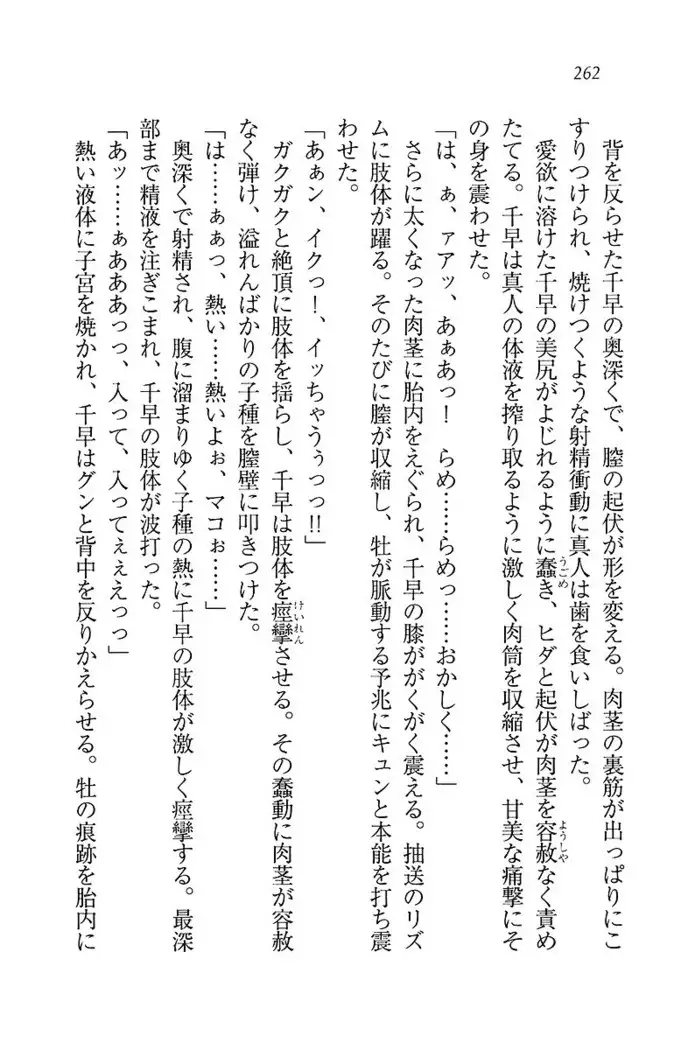 262
背を反らせた千早の奥深くで、膣の起伏が形を変える。肉茎の裏筋が出っぱりにこ
すりつけられ、焼けつくような射精衝動に真人は歯を食いしばった。
愛欲に溶けた千早の美尻がよじれるように蠢き、ヒダと起伏が肉茎を容赦なく責め
うごめ ようしゃ
たてる。千早は真人の体液を搾り取るように激しく肉筒を収縮させ、甘美な痛撃にそ
の身を震わせた。
「は、ぁ、ァアッ、あぁあっ！　らめ……らめっ……おかしく……」
さらに太くなった肉茎に胎内をえぐられ、千早の膝ががくがく震える。抽送のリズ
ムに肢体が躍る。そのたびに膣が収縮し、牡が脈動する予兆にキュンと本能を打ち震
わせた。
「あぁン、イクっ！、イッちゃうぅっっ!!」
ガクガクと絶頂に肢体を揺らし、千早は肢体を痙攣させる。その蠢動に肉茎が容赦
けいれん
なく弾け、溢れんばかりの子種を膣壁に叩きつけた。
「は……ぁぁっ、熱い……熱いよぉ、マコぉ……」
奥深くで射精され、腹に溜まりゆく子種の熱に千早の肢体が激しく痙攣する。最深
部まで精液を注ぎこまれ、千早の肢体が波打った。
「あッ……ぁあああっっ、入って、入ってぇええっっ」
熱い液体に子宮を焼かれ、千早はグンと背中を反りかえらせる。牡の痕跡を胎内に